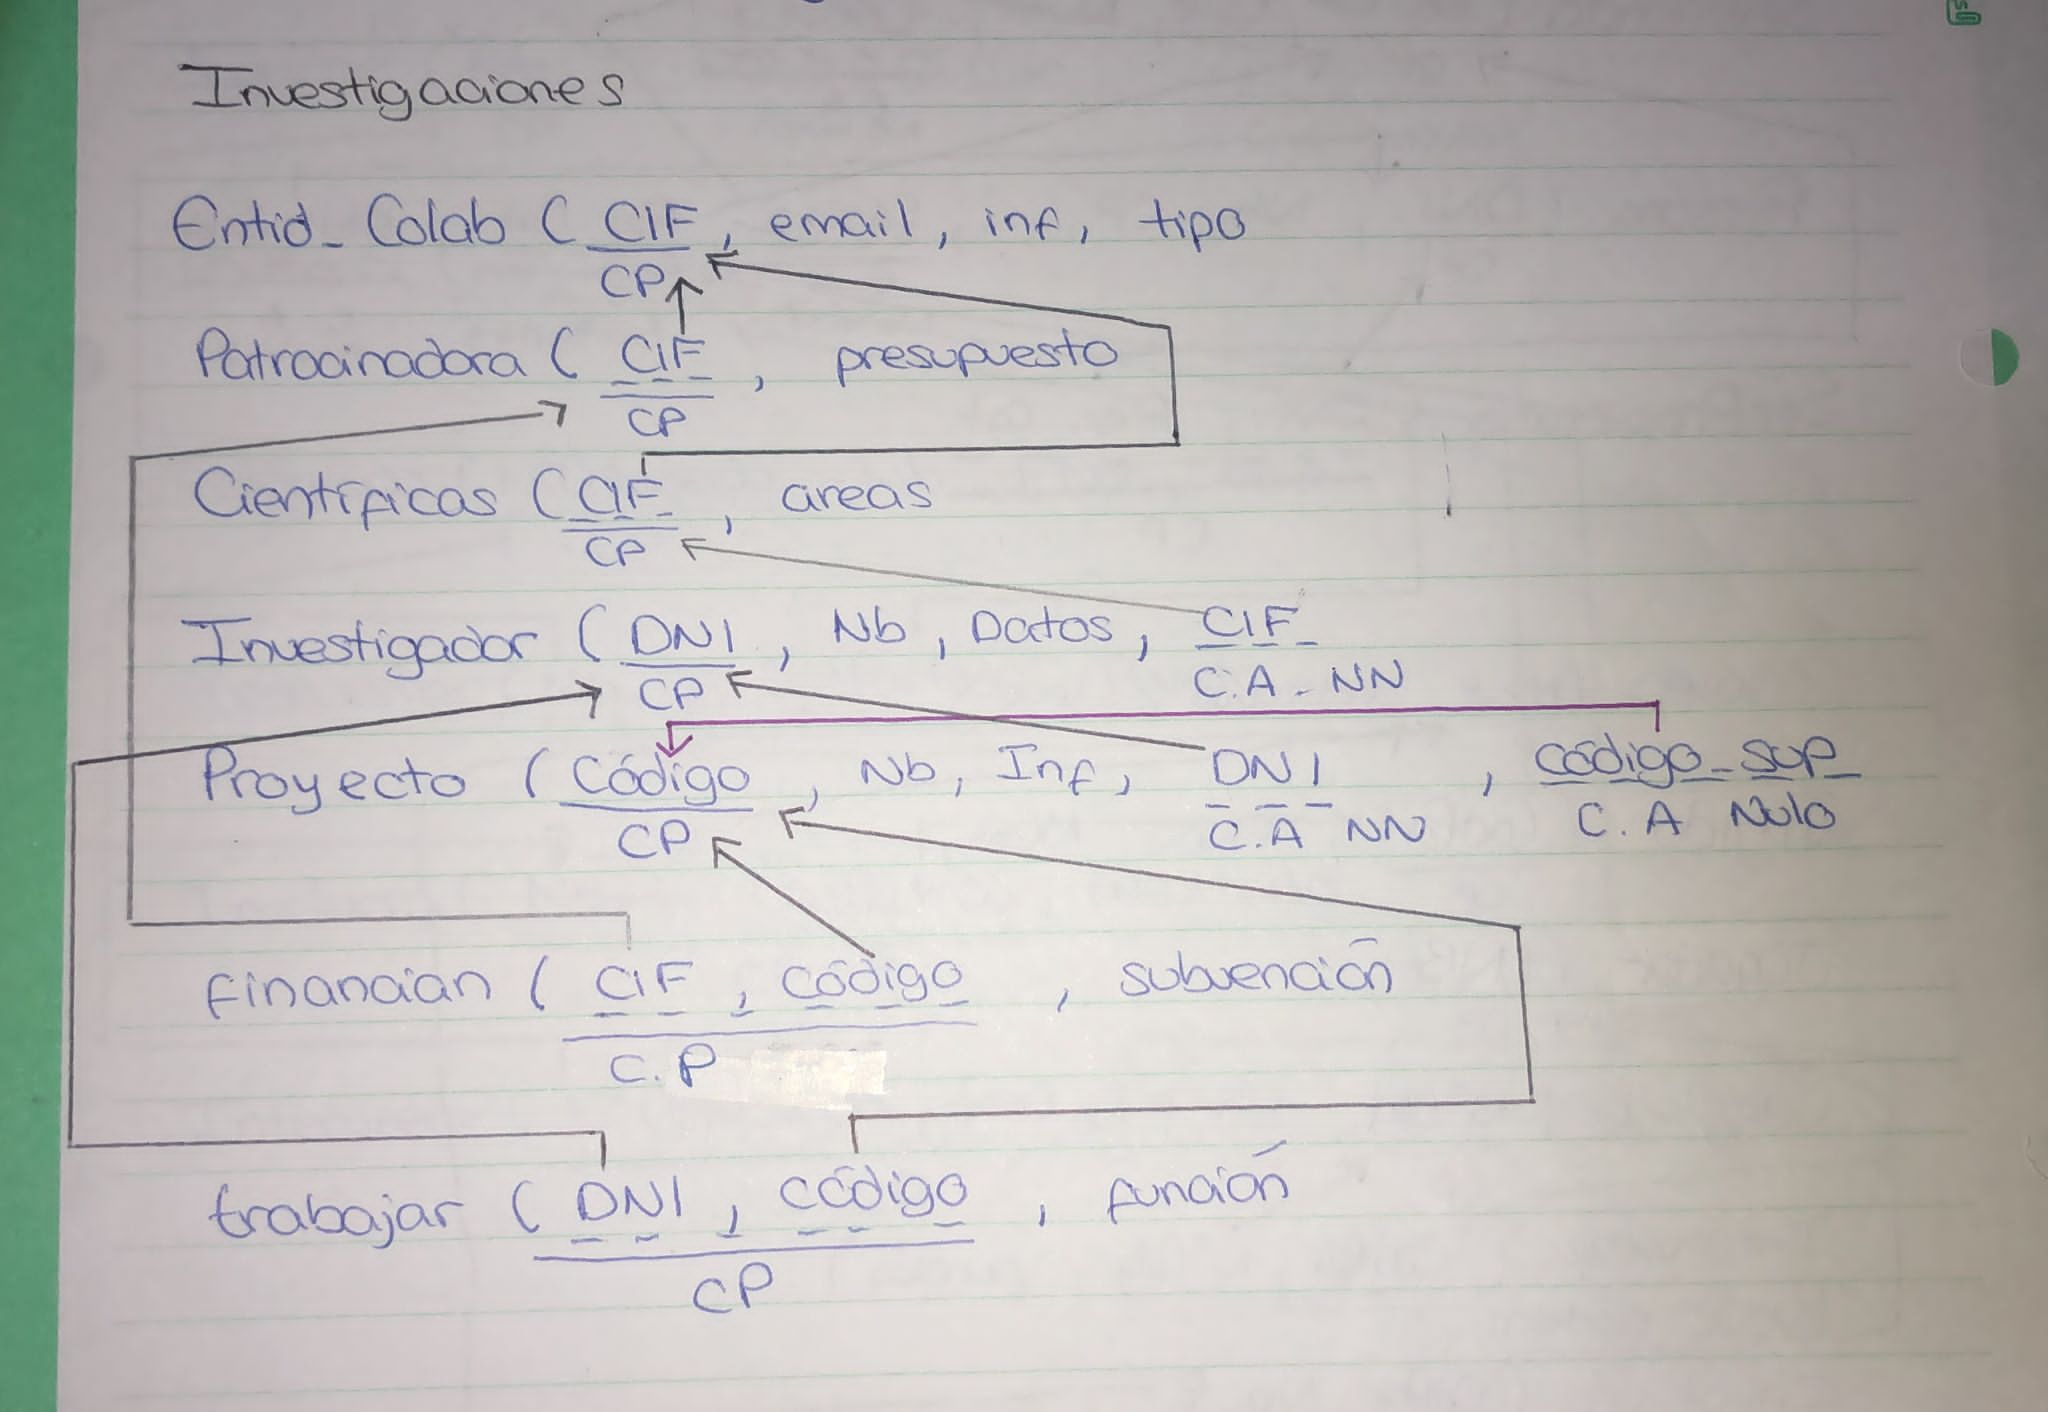 Investigaciones
Entid_ Colab ( CIF, email, inf, tipo
CP
Patrocinadora ( CIF, presupuesto
CP
Científicas ( CIF, areas
CP
Investigador ( DNI, Nb, Datos, CIF
CP C.A - NN
Proyecto ( Código, Nb, Inf, DNI, código_sup
CP C.A NN C.A Nulo
financian ( CIF, código, subvención
C.P
trabajar ( DNI, código, función
CP